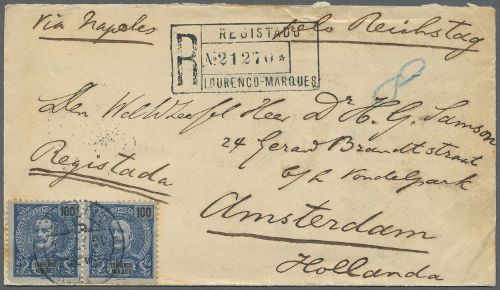 via Naples
pelo Reichstag
REGISTADO
R
No 21270
LOURENÇO-MARQUES
Den WelEd. Heer Dr H. G. Samson
24 Gerard Brandtstraat
b/h Vondelpark
Registada
Amsterdam
Hollanda
100
100